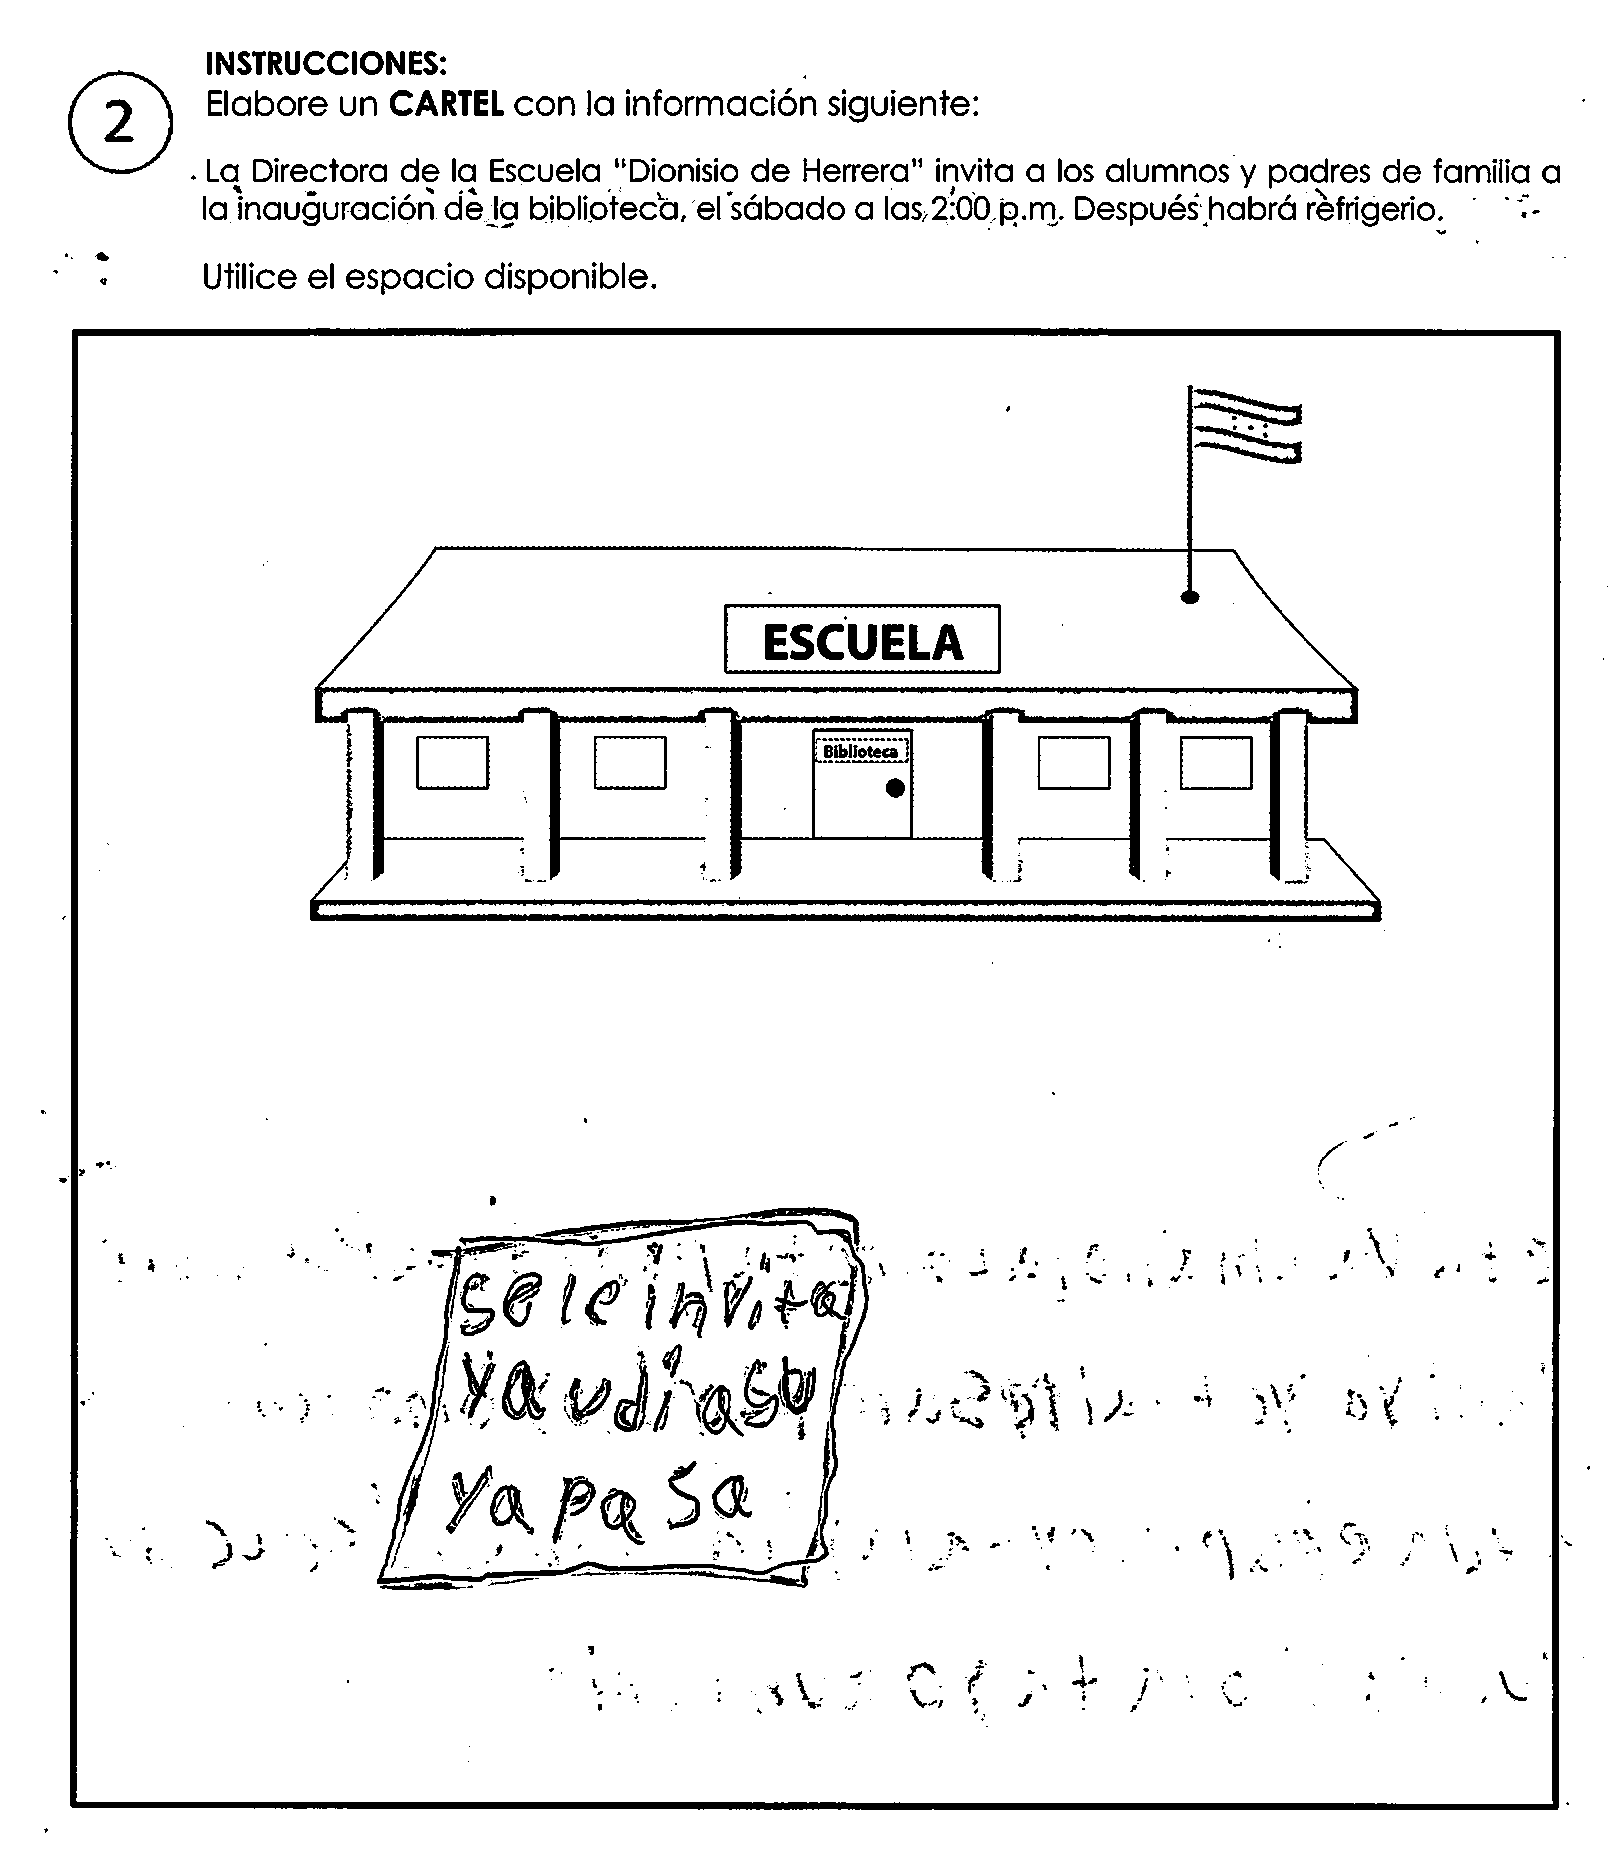 INSTRUCCIONES:
2
Elabore un CARTEL con la información siguiente:
La Directora de la Escuela "Dionisio de Herrera" invita a los alumnos y padres de familia a
la inauguración de la biblioteca, el sábado a las 2:00 p.m. Después habrá refrigerio.
Utilice el espacio disponible.
ESCUELA
Biblioteca
se le invita
ya u di a su
ya pa sa